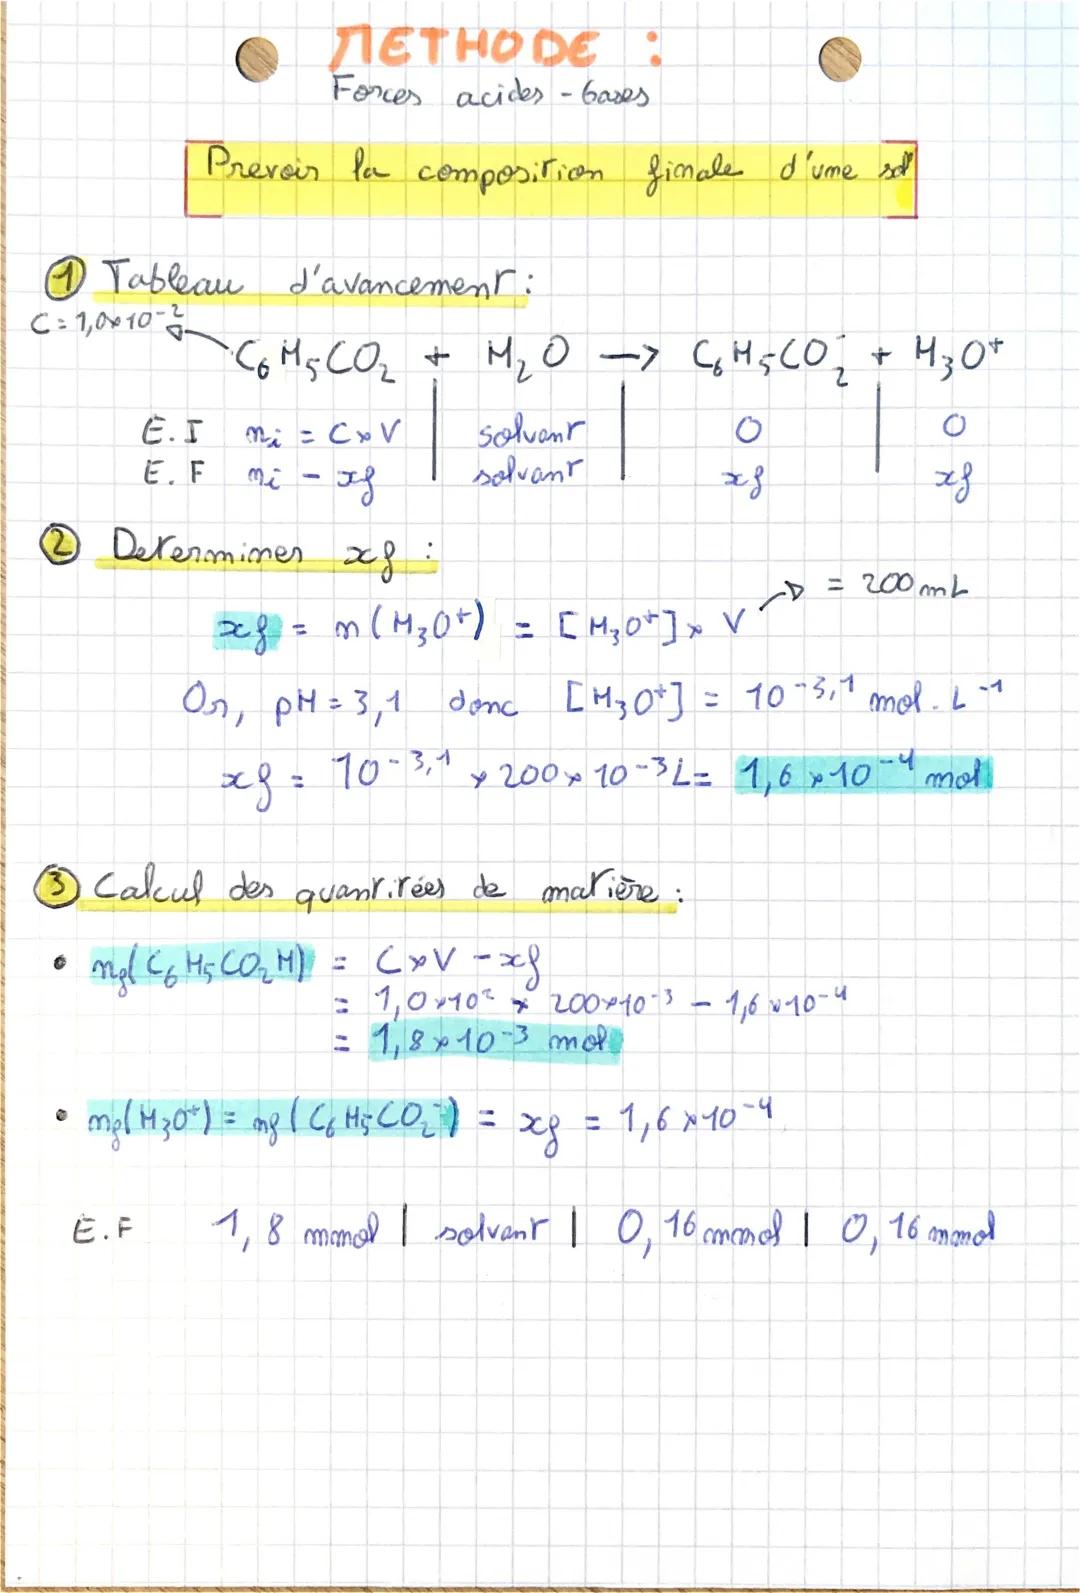 METHODE :
Forces acides - bases
Prevoir la composition finale d'une sol°
1 Tableau d'avancement :
C = 1,0×10⁻²
C₆H₅CO₂ + H₂O -> C₆H₅CO₂⁻ + H₃O⁺
E.I nᵢ = C×V | solvant | 0 | 0
E.F nᵢ - xf | solvant | xf | xf
2 Determiner xf :
= 200 mL
xf = n(H₃O⁺) = [H₃O⁺] × V
Or, pH = 3,1 donc [H₃O⁺] = 10⁻³,¹ mol.L⁻¹
xf = 10⁻³,¹ × 200×10⁻³L = 1,6×10⁻⁴ mol
3 Calcul des quantitées de matière :
• nf(C₆H₅CO₂H) = C×V - xf
= 1,0×10² × 200×10⁻³ - 1,6×10⁻⁴
= 1,8×10⁻³ mol
• nf(H₃O⁺) = nf(C₆H₅CO₂⁻) = xf = 1,6×10⁻⁴
E.F 1,8 mmol | solvant | 0,16 mmol | 0,16 mmol